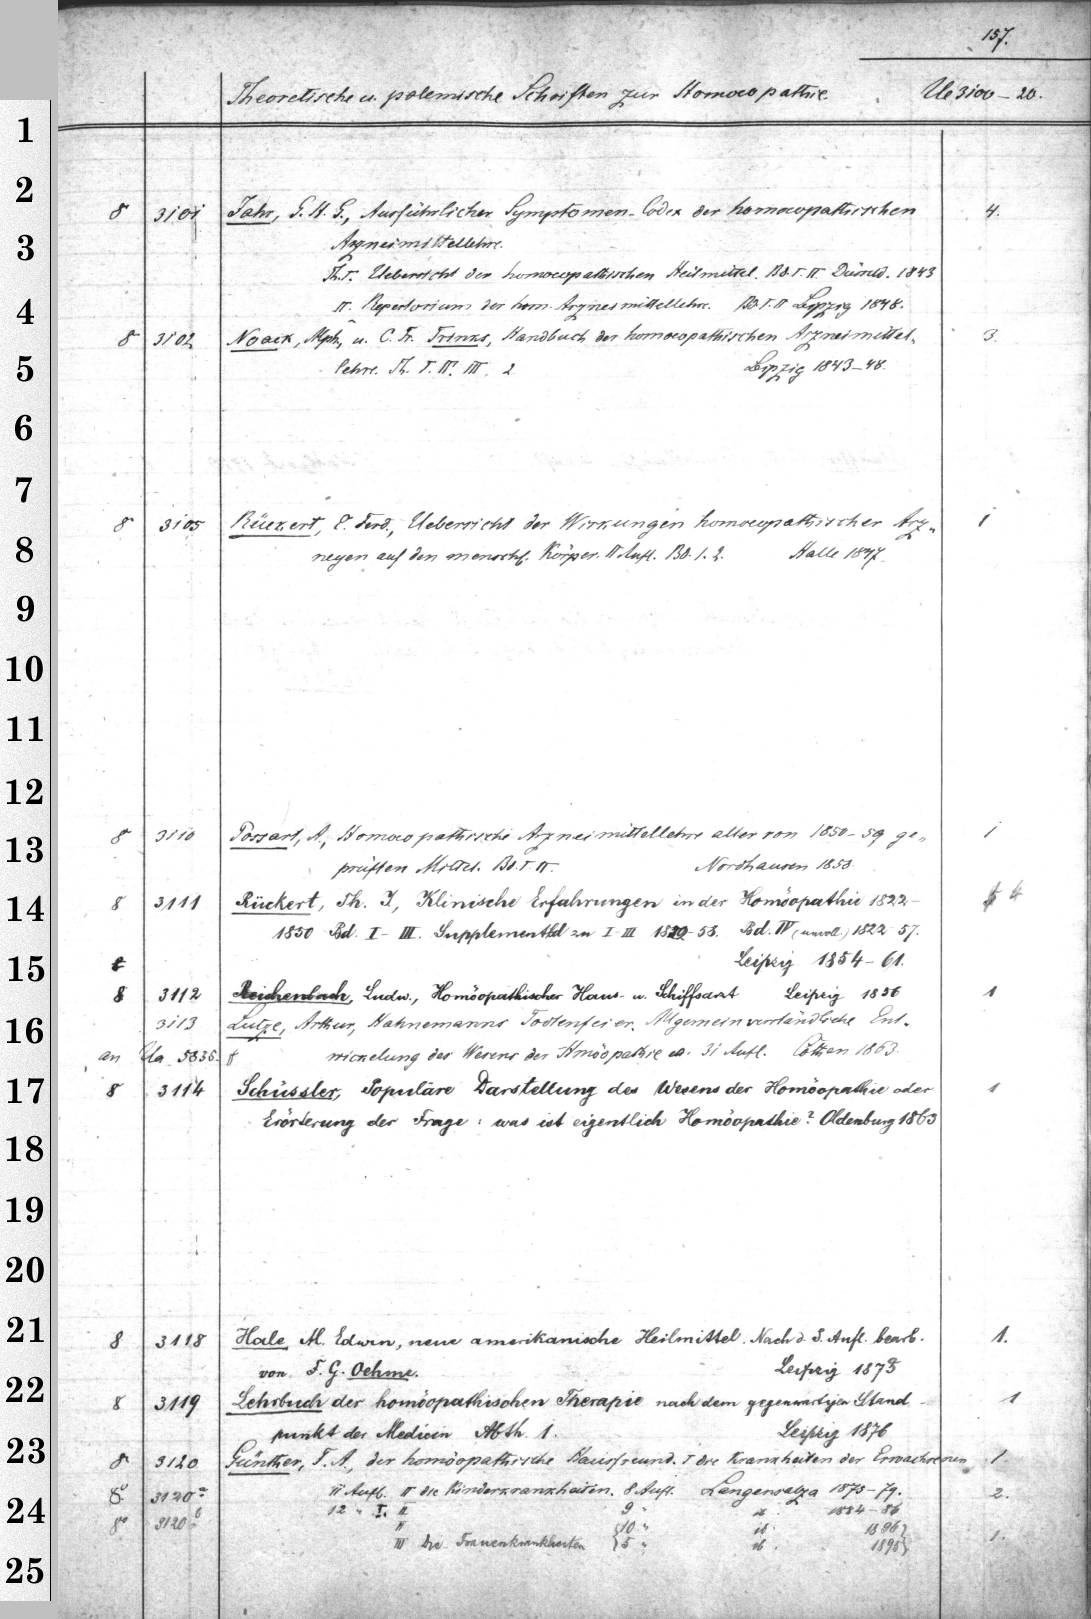 157.
Theoretische u. polemische Schriften zur Homoeopathie. Ue 3100-20.
1
2
8 3101 Jahr, G. H. G., Ausführlicher Symptomen-Codex der homoeopathischen 4.
3
Arzneimittellehre.
Th. I. Uebersicht der homoeopathischen Heilmittel. Bd. I. II Düsseld. 1843
4
II. Repertorium der hom. Arzneimittellehre. Bd. I. II Leipzig 1848.
8 3102 Noack, Alph. u. C. Fr. Trinks, Handbuch der homoeopathischen Arzneimittel- 3.
5
lehre. Th. I. II. III. 2 Leipzig 1843-48.
6
7
8 3105 Rückert, E. Ferd., Uebersicht der Wirkungen homoeopathischer Arz- 1
8
neyen auf den menschl. Körper. II Aufl. Bd. 1. 2. Halle 1847.
9
10
11
12
8 3110 Possart, A., Homoeopathische Arzneimittellehre aller von 1850-59 ge- 1
13
prüften Mittel. Bd. I II. Nordhausen 1858
14
8 3111 Rückert, Th. J., Klinische Erfahrungen in der Homöopathie 1822- 4
1850 Bd. I-III. Supplementbd zu I-III 1850-58. Bd. IV (unvoll.) 1822-57.
15
Leipzig 1854-61.
8 3112 Reichenbach, Ludw., Homöopathischer Haus- u. Schiffsarzt Leipzig 1856 1
16
3113 Lutze, Arthur, Hahnemanns Todtenfeier. Allgemein verständliche Ent-
an Ua 5836 f wickelung des Wesens der Hmöopathie 31 Aufl. Cöthen 1863.
17
8 3114 Schüssler, Populäre Darstellung des Wesens der Homöopathie oder 1
Erörterung der Frage: was ist eigentlich Homöopathie? Oldenburg 1863
18
19
20
21
8 3118 Hale, M. Edwin, neue amerikanische Heilmittel. Nach d. 3. Aufl. bearb. 1.
von F. G. Oehme. Leipzig 1873
22
8 3119 Lehrbuch der homöopathischen Therapie nach dem gegenwärtigen Stand- 1
punkt der Medicin Abth. 1. Leipzig 1876
23
8 3120 Günther, F. A., der homöopathische Hausfreund. I die Krankheiten der Erwachsenen 1.
8° 3120 a 11 Aufl. II die Kinderkrankheiten. 8 Aufl. Langensalza 1875-79. 2.
24
8° 3120 b 12 " I. II 9 " ib. 1884-86
II {10 " ib. 1896}
III Die Frauenkrankheiten {5 " ib. 1895} 1.
25